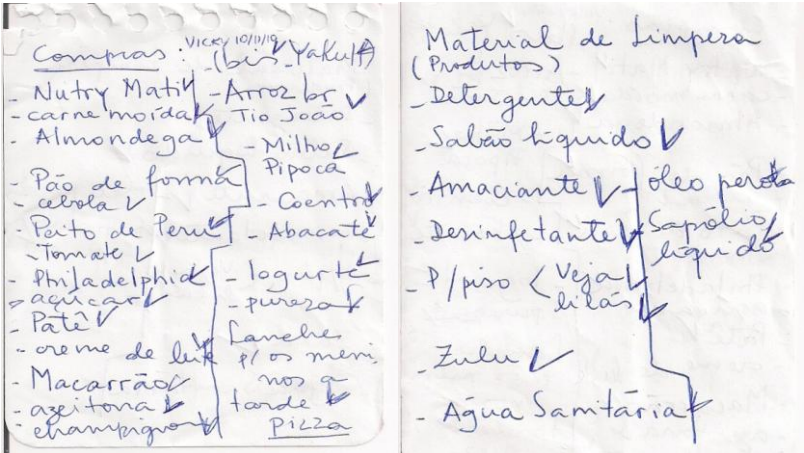 Compras: VICKY 10/11/19
(bis - Yakult)
- Nutry Matil
- carne moída
- Almondega
- Pão de forma
- cebola
- Peito de Peru
- Tomate
- Philadelphia
- açúcar
- Patê
- creme de leite
- Macarrão
- azeitona
- champignon
- Arroz br
Tio João
- Milho
Pipoca
- Coentro
- Abacate
- Iogurte
- pureza
Lanche
p/ os meni
nos a
tarde
Pizza
Material de Limpeza
(Produtos)
- Detergente
- Sabão líquido
- Amaciante
- Desinfetante
- P/piso < Veja
lilás
- Zulu
- Água Sanitária
- óleo peroba
- Sapólio
líquido